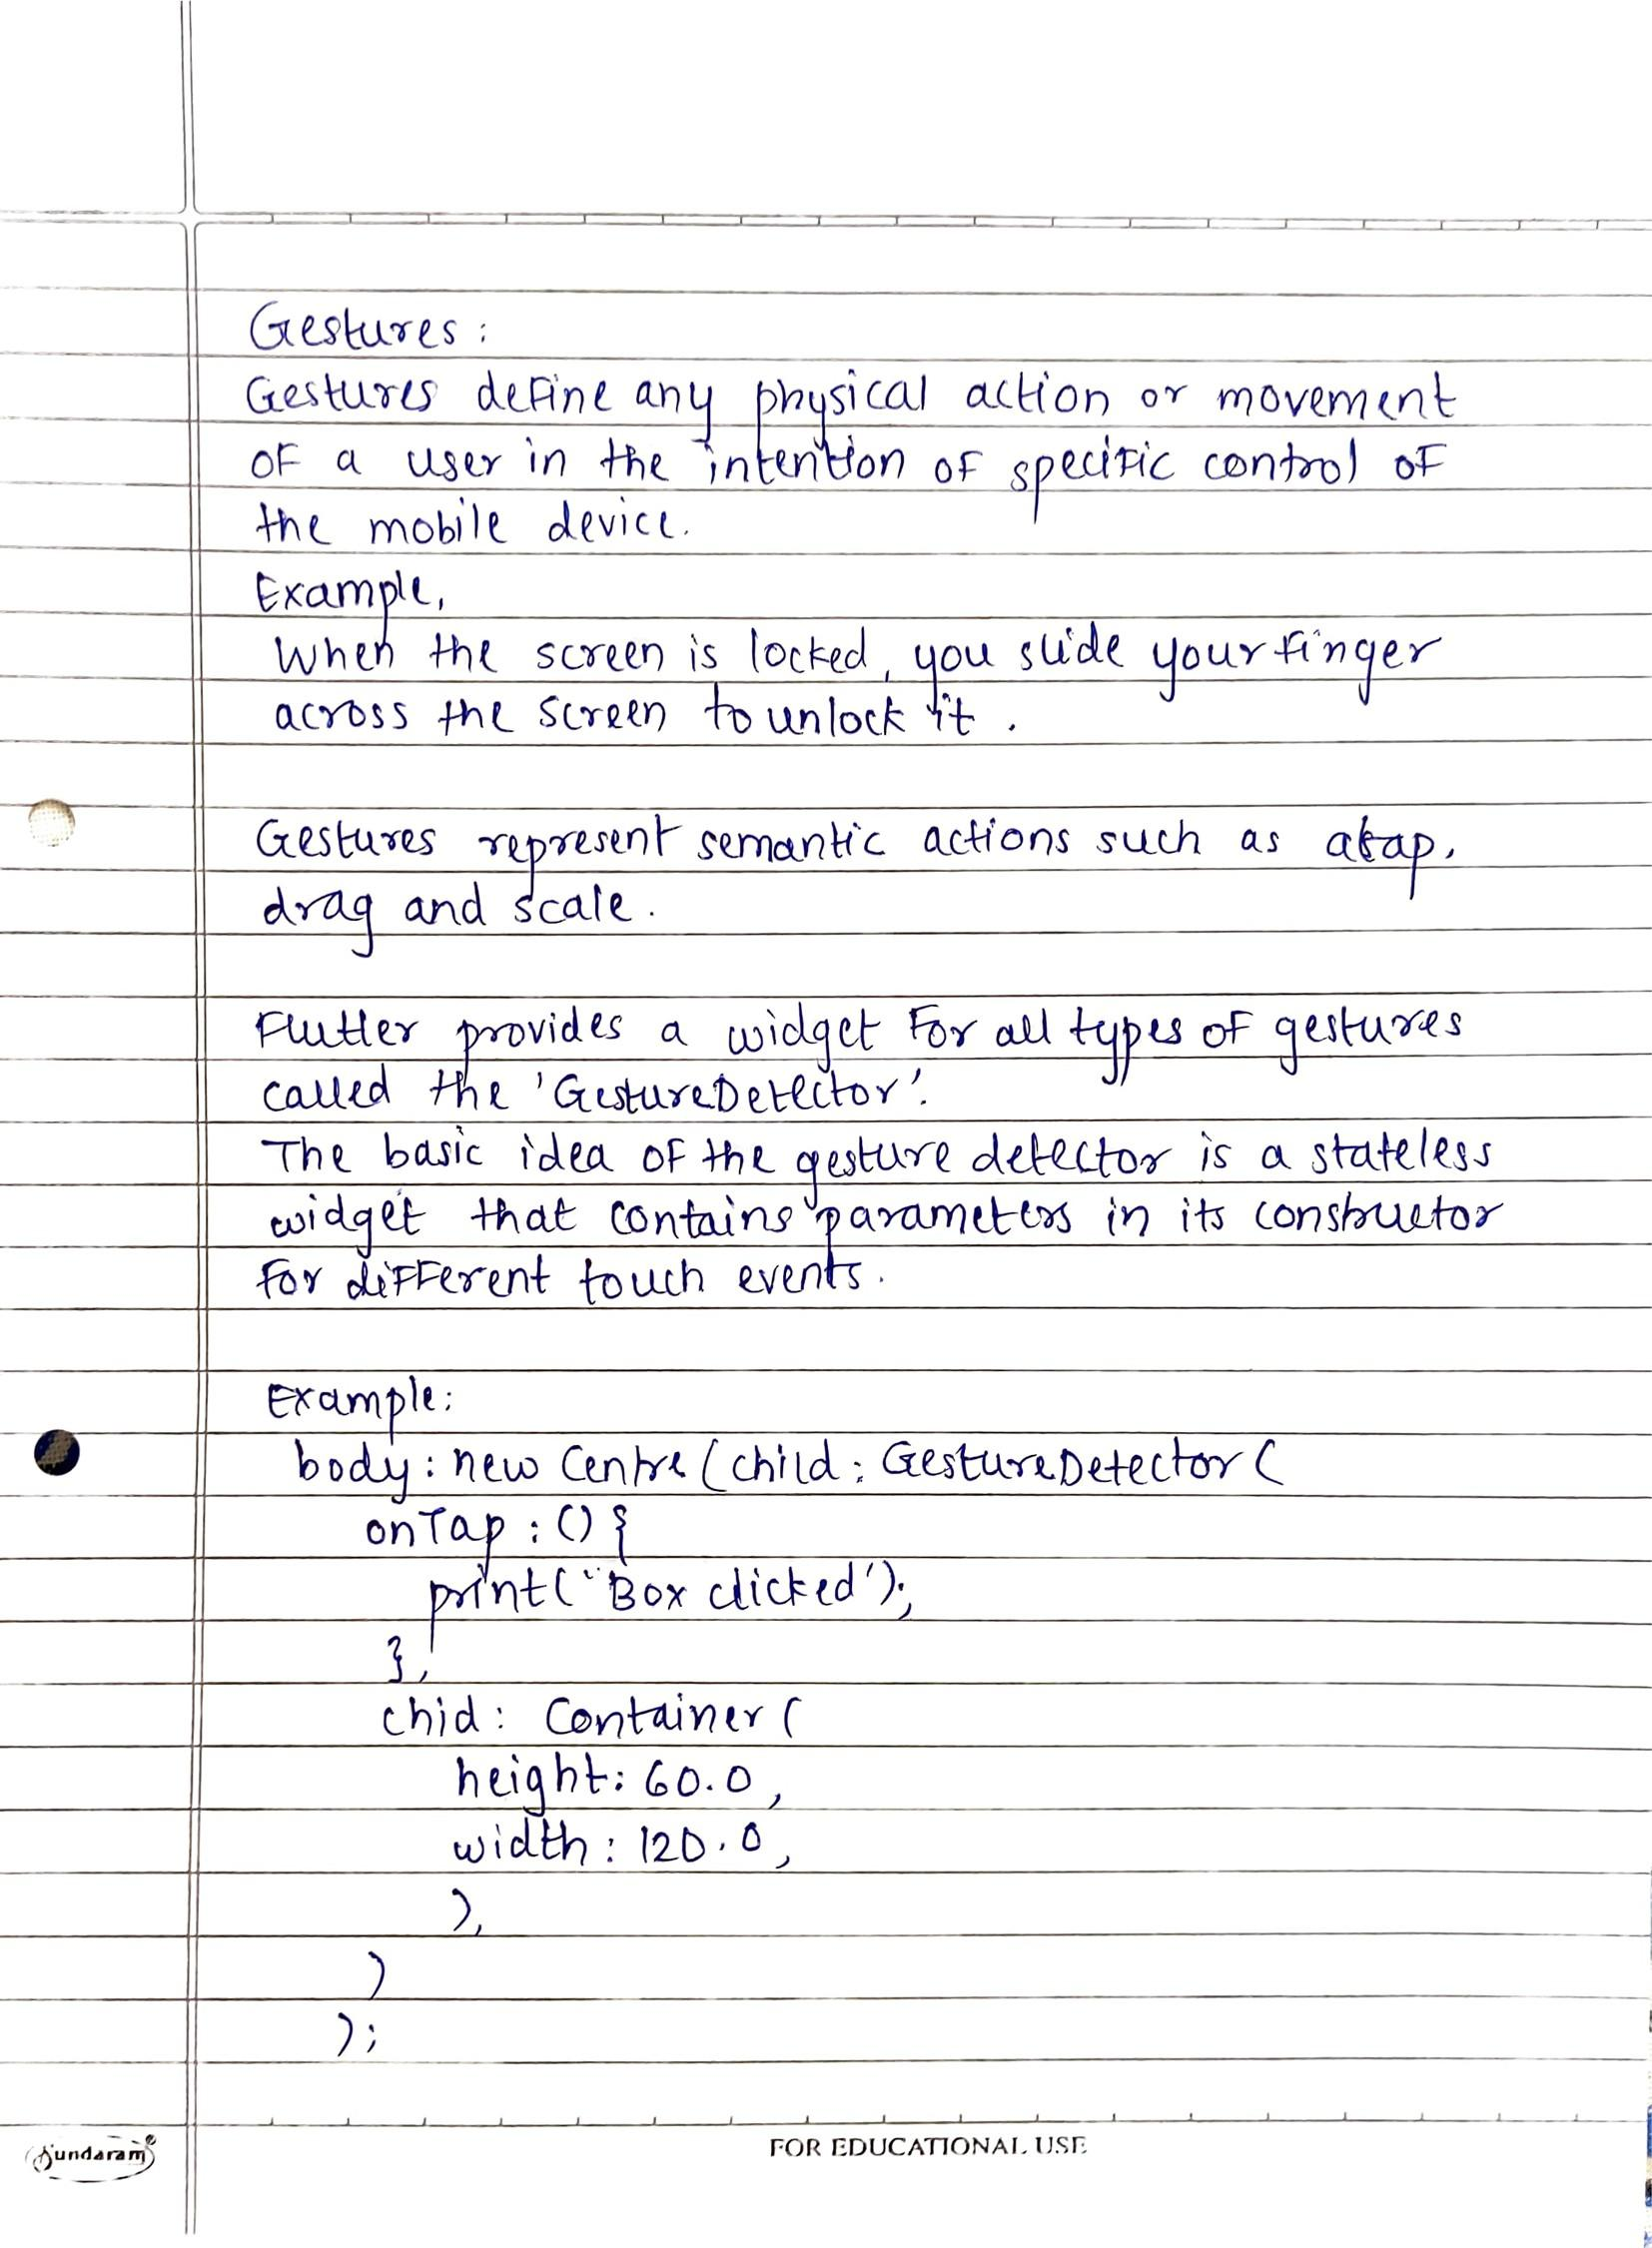 Gestures:
Gestures define any physical action or movement
of a user in the intention of specific control of
the mobile device.
Example,
When the screen is locked, you slide your finger
across the screen to unlock it.
Gestures represent semantic actions such as a tap,
drag and scale.
Flutter provides a widget for all types of gestures
called the 'GestureDetector'.
The basic idea of the gesture detector is a stateless
widget that contains parameters in its constructor
for different touch events.
Example:
body: new Centre(child: GestureDetector(
onTap: () {
print("Box clicked');
},
chid: Container(
height: 60.0,
width: 120.0,
),
)
);
Sundaram
FOR EDUCATIONAL USE